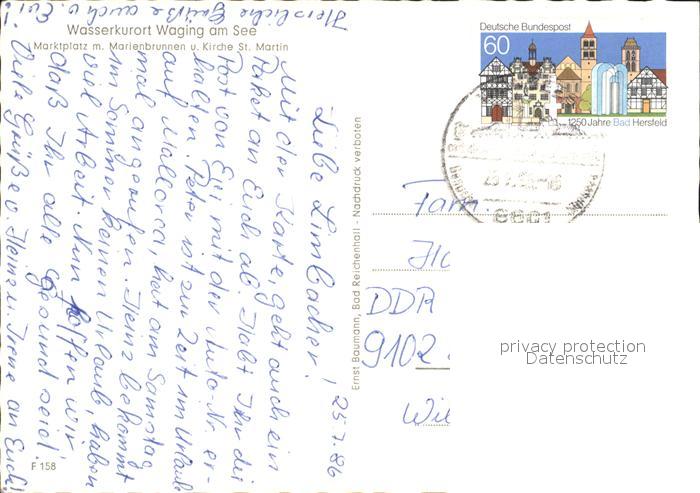 Wasserkurort Waging am See
Marktplatz m. Marienbrunnen u. Kirche St. Martin
Deutsche Bundespost
60
1250 Jahre Bad Hersfeld
Ernst Baumann, Bad Reichenhall - Nachdruck verboten
25.7.86
Liebe Limbacher!
Mit der Karte, geht auch ein
Paket an Euch ab. Habt Ihr die
Post von Evi mit der Auto-Nr. er-
halten. Peter ist zur Zeit im Urlaub
auf Mallorca, hat am Samstag
mal angerufen. Heinz bekommt
im Sommer keinen Urlaub, haben
viel Arbeit. Nun hoffen wir
daß Ihr alle gesund seid!
Viele Grüße v. Heinz, Irene an Euch!
Herzliche Grüße auch v. Evi!
Fam.
DDR
9102
F 158
privacy protection
Datenschutz